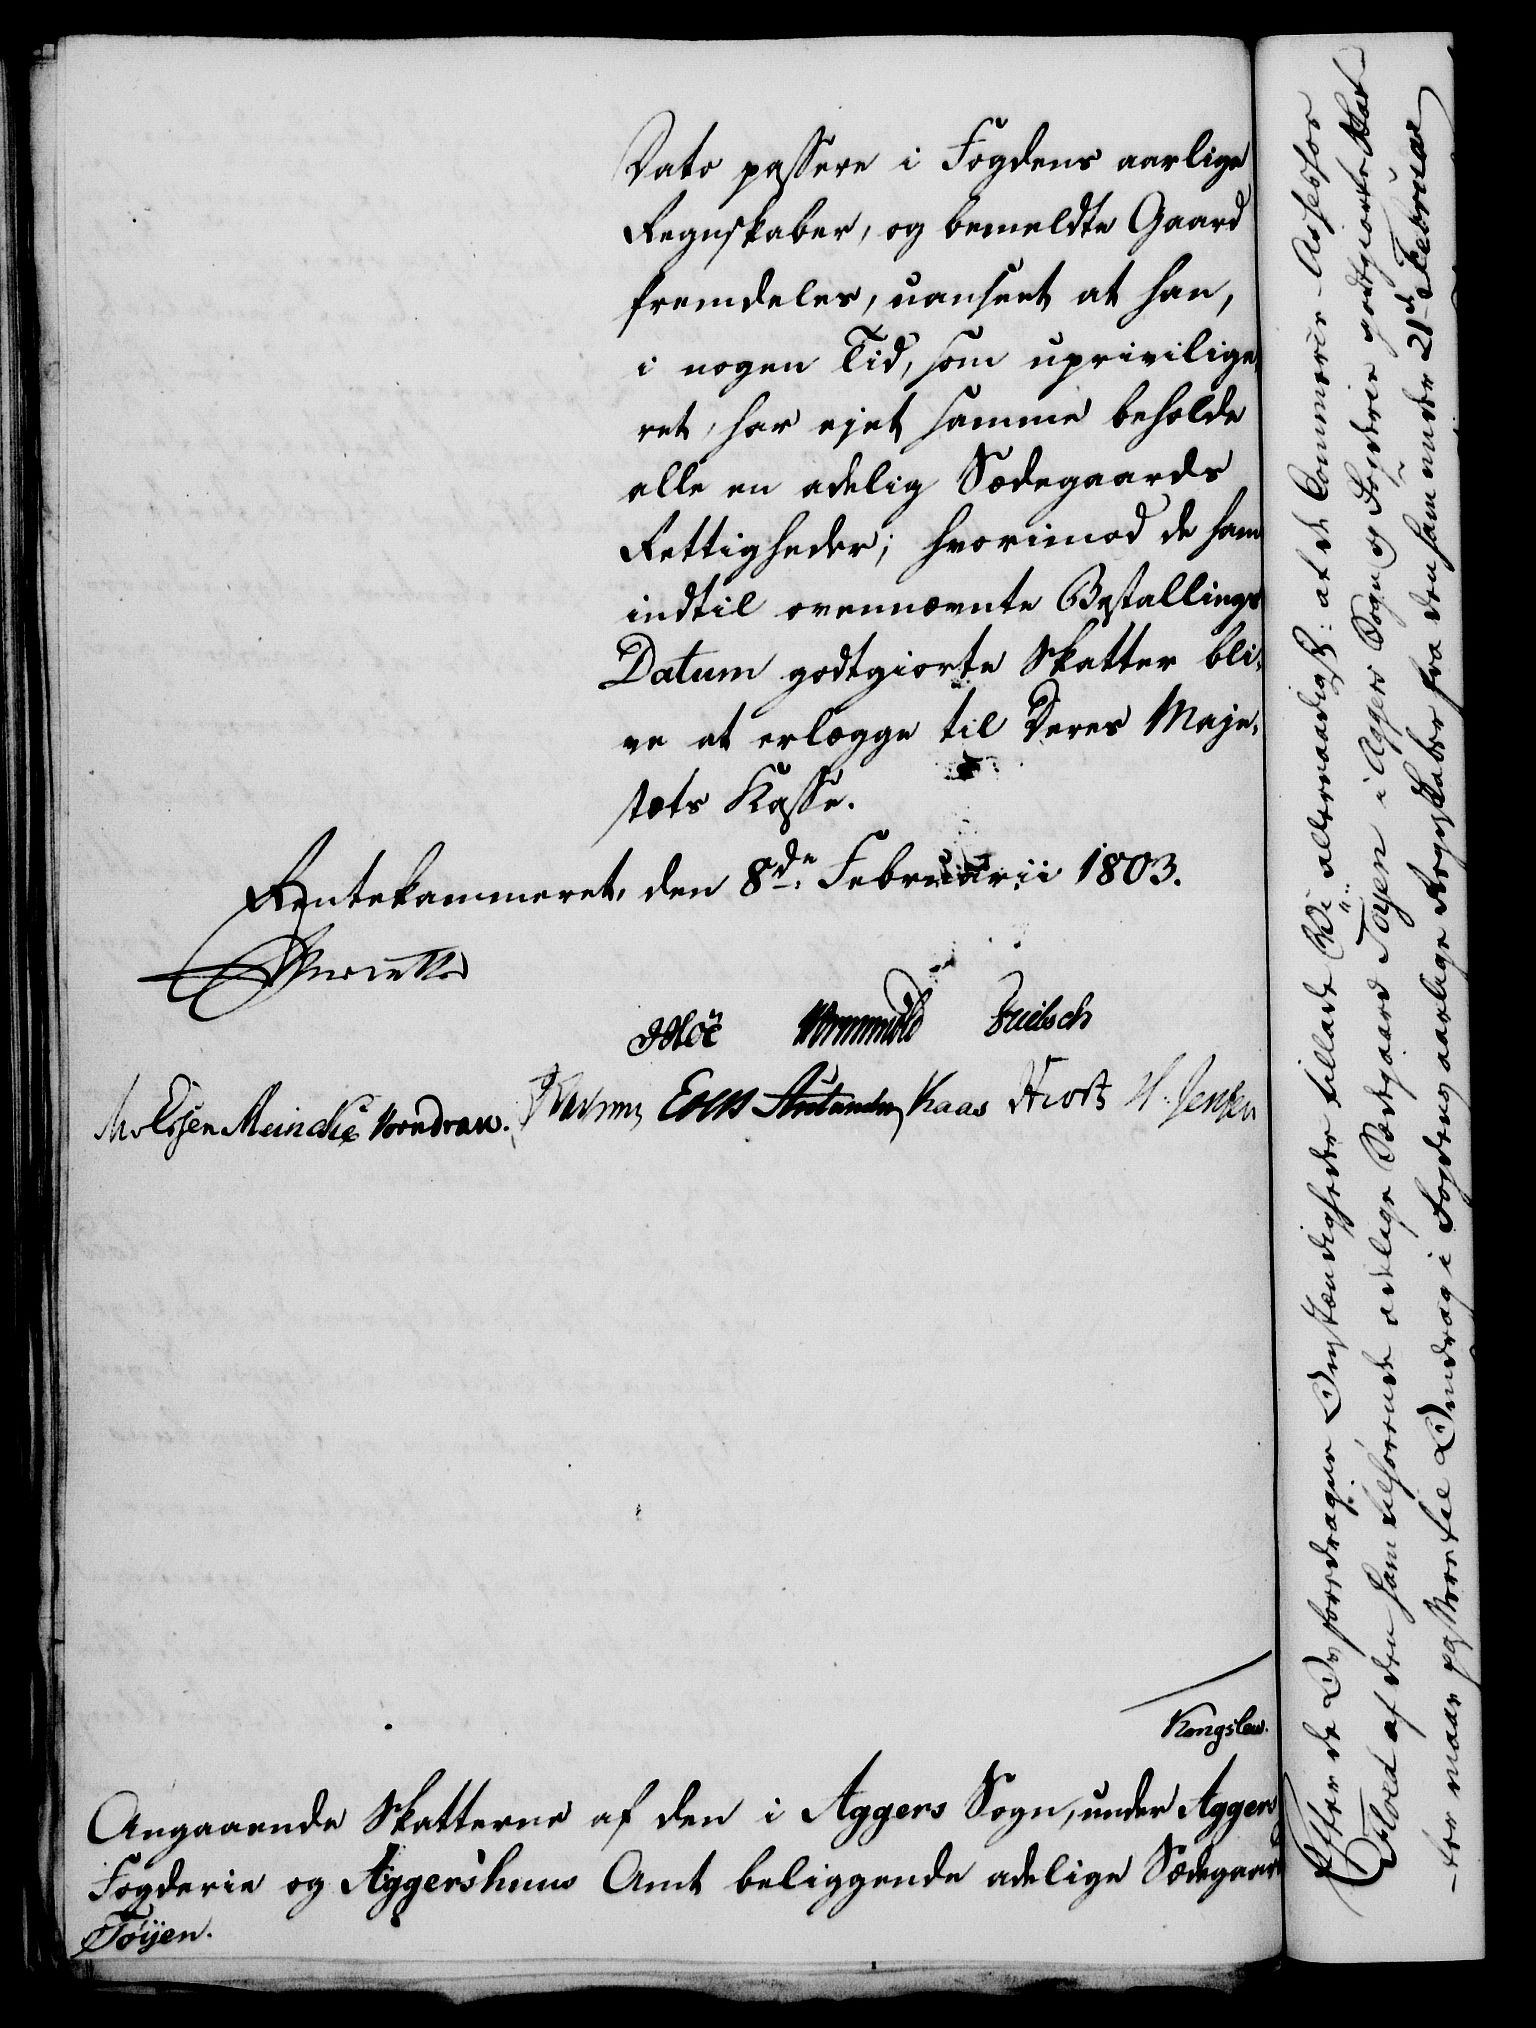 Dato passere i Fogdens aarlige
Regnskaber, og bemeldte Gaard
fremdeles, uanseet at han,
i nogen Tid, som uprivilige,
ret, har ejet samme beholde
alle en adelig Sædegaards
Rettigheder; hvorimod de ham
indtil ovennævnte Bestallings
Datum godtgiorte Skatter bli,
ve at erlægge til Deres Maje,
stæts Kasse.
Rentekammeret, den 8de Februarii 1803.
Wormskiold
Meincke Vorndran. Kaas Hiort H. Jensen
Kongslew.
Angaaende Skatterne af den i Aggers Sogn, under Aggers
Fogderie og Aggershuus Amt beliggende adelige Sædegaard
Töyen.
Efter de Os foredragne Omstændigheder tillade Vi allernaadigst: at de Commerce-Assessor
af den ham tilhørende adelige Sædegaard Töyen i Aggers Sogn og Fogderie godtgiorte Skat-
-ter maae passere til Omdrag i Fogdens aarlige Regnskaber fra den ham under 21de Februar